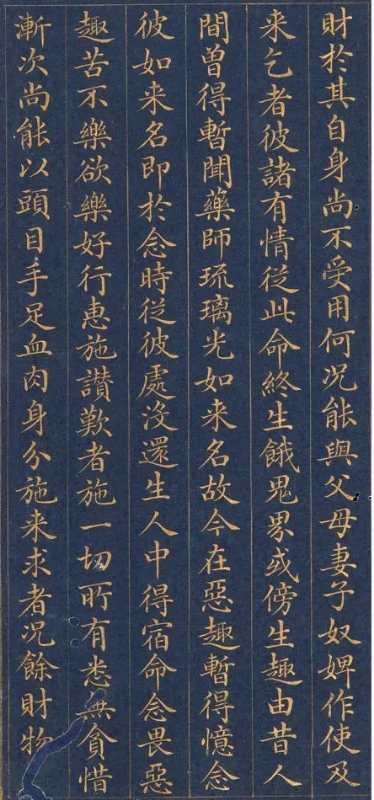 財於其自身尚不受用何况能與父母妻子奴婢作使及
来乞者彼諸有情從此命終生餓鬼界或傍生趣由昔人
間曾得暫聞藥師琉璃光如来名故今在惡趣暫得憶念
彼如来名即於念時從彼處没還生人中得宿命念畏惡
趣苦不樂欲樂好行惠施讃歎者施一切所有悉無貪惜
漸次尚能以頭目手足血肉身分施来求者况餘財物